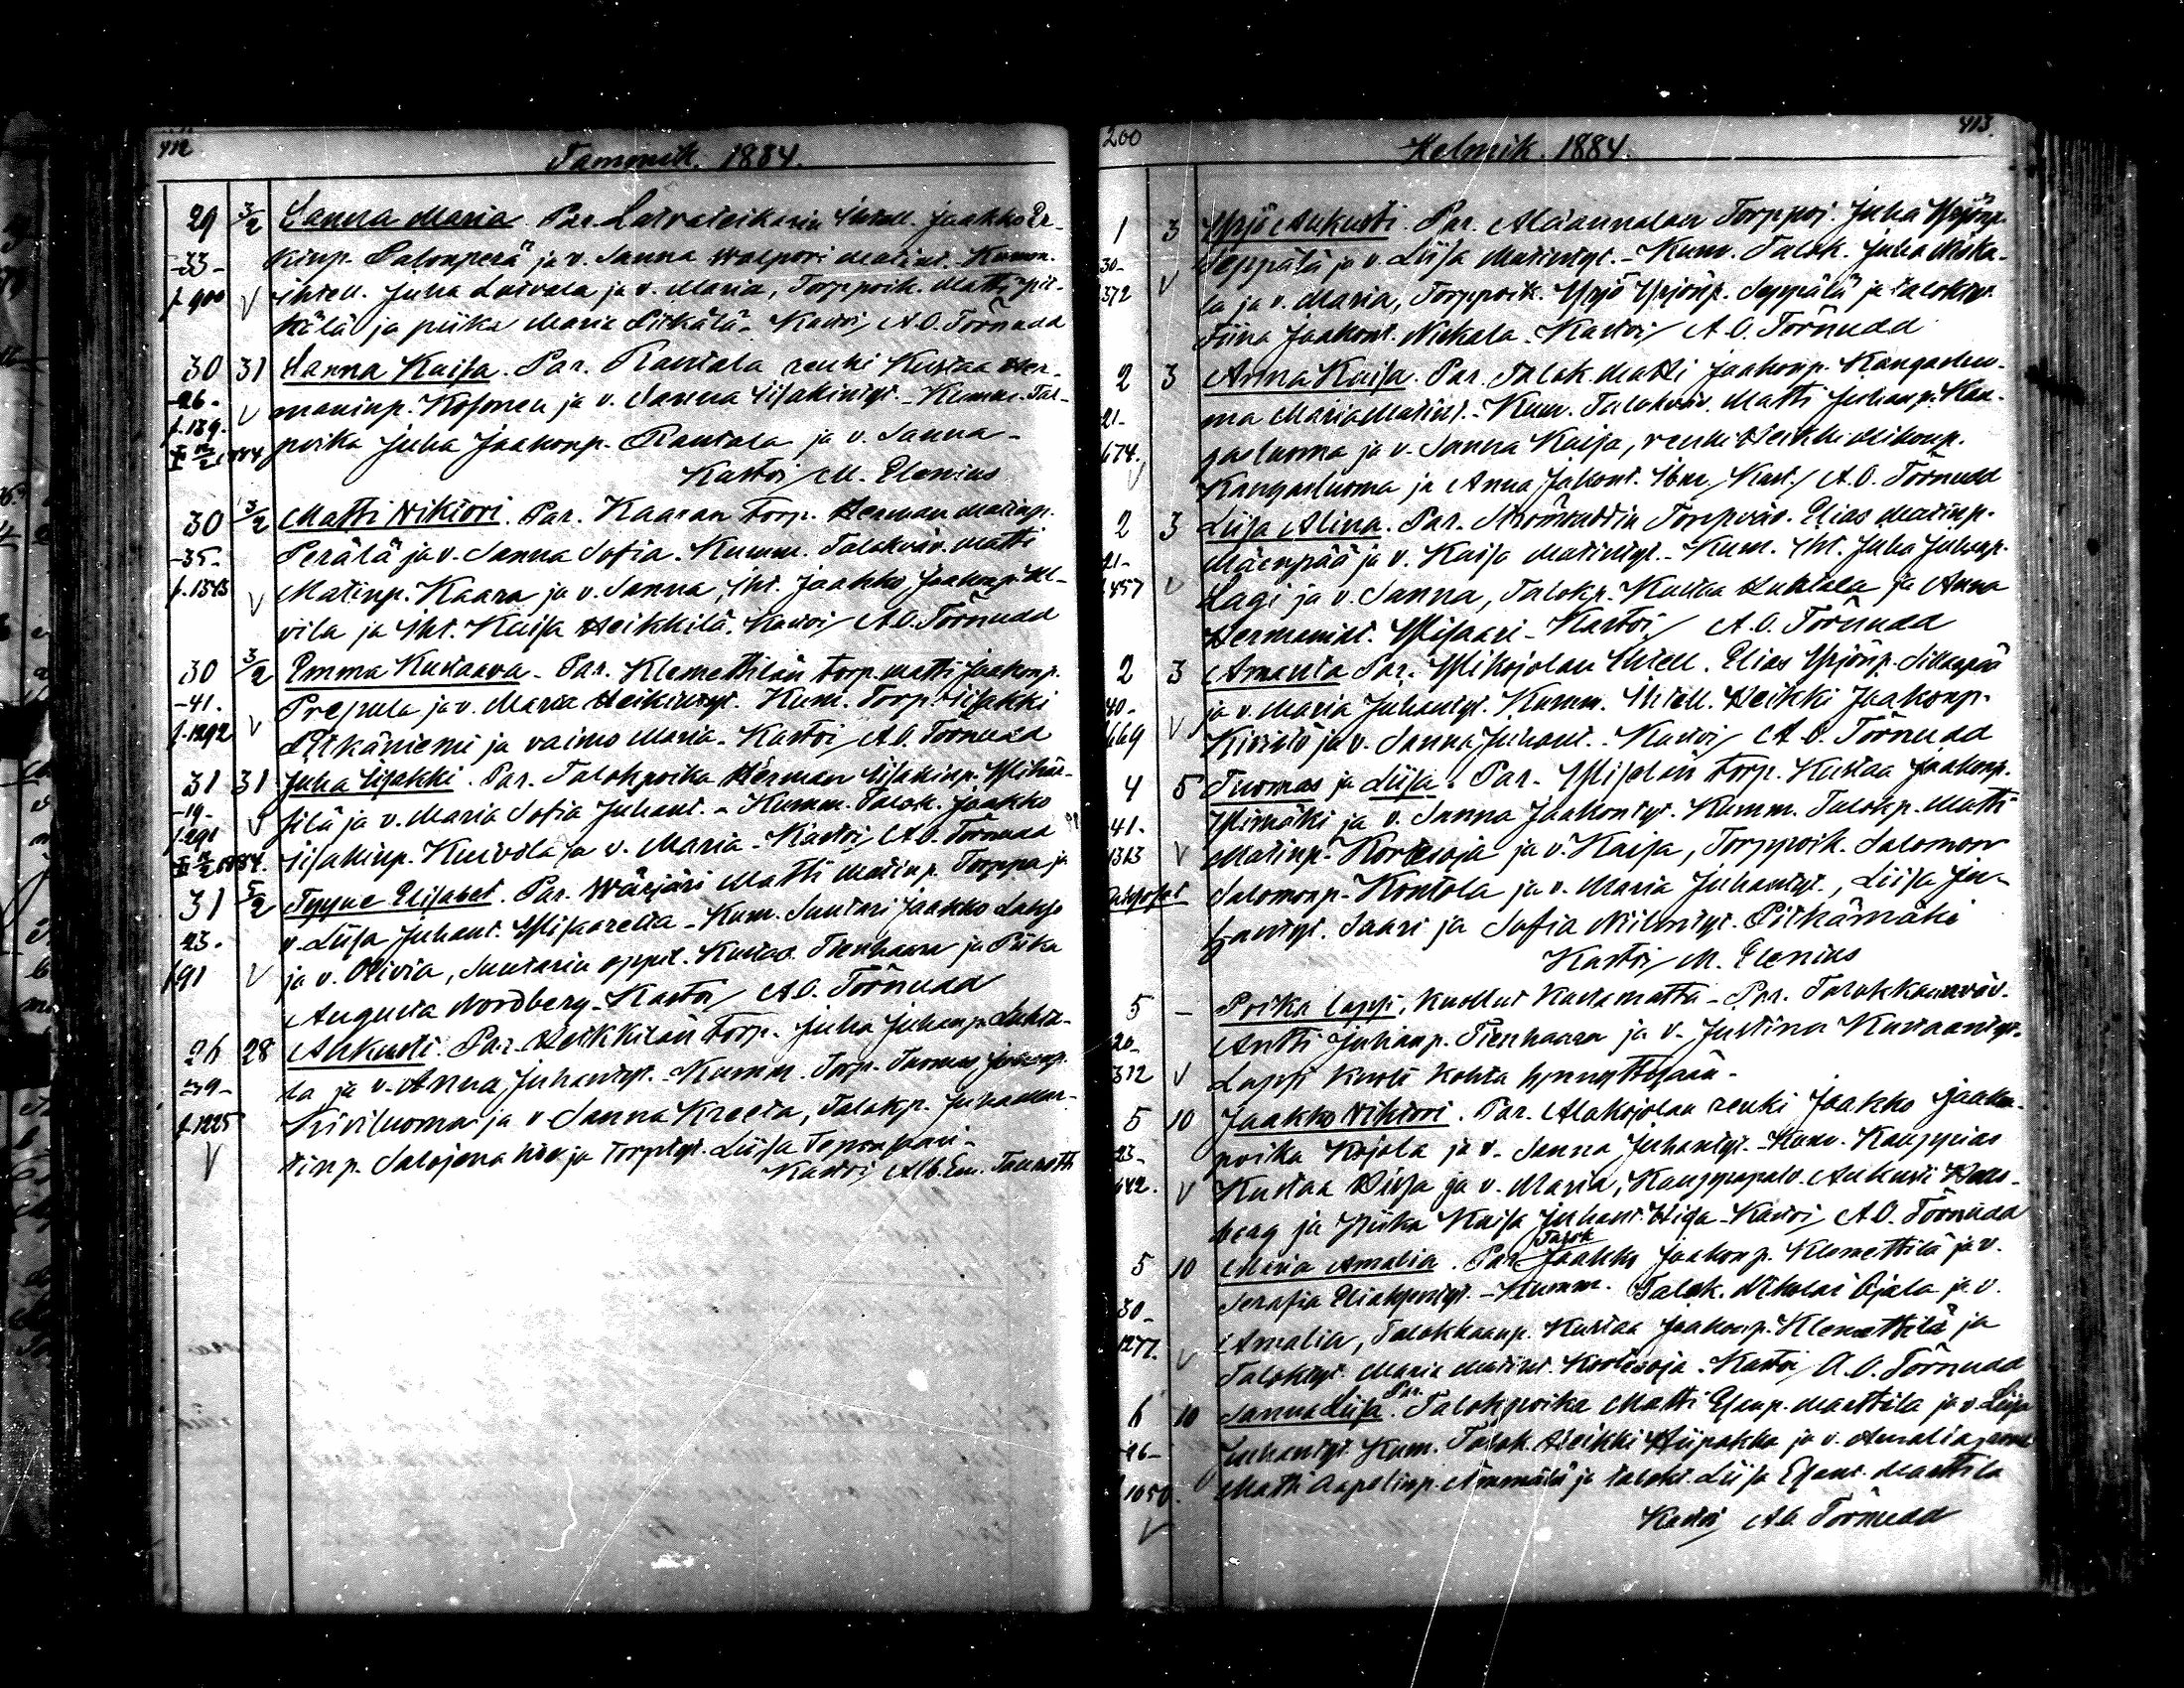 412
Tammik. 1884.
29 3/2 Sanna Maria. Par. Latvateikarin Ihtell. Jaakko Er-
-33- kinp. Salonperä ja v. Sanna Walpori Matint. Kumm.
f. 900 V ihtell. Juha Latvala ja v. Maria, Torppoik. Matti Pit-
kälä ja piika Maria Pitkälä. Kastoi A.O. Törnudd
30 31 Sanna Kaisa. Par. Rantala renki Kustaa Her-
-26- maninp. Kosonen ja v. Sanna Iisakintyt. - Kumm. Tal-
f. 189. V poika Juha Jaakonp. Rantala ja v. Sanna -
Kastoi M. Elenius
30 3/2 Matti Nikteri. Par. Kaaran torp. Herman Matinp.
-35- Perälä ja v. Sanna Sofia. Kumm. Talokväv. Matti
f. 1543 V Matinp. Kaara ja v. Sanna, Iht. Jaakko Jaakonp.
vila ja Iht. Kaisa Heikkilä. Kastoi A.O. Törnudd
30 3/2 Emma Kustaava - Par. Klemettilän torp. Matti Jaakonp.
-41. Prepula ja v. Maria Heikintyt. Kum. Torp. Iisakki
f. 1292 V Pitkäniemi ja vaimo Maria. Kastoi A.O. Törnudd
31 31 Juha Iisakki. Par. Talokpoika Herman Iisakinp.
-19- V ja v. Maria Sofia Juhant. - Kumm. Talok. Jaakko
f. 291 Iisakinp. Kuivola ja v. Maria - Kastoi A.O. Törnudd
31 5/2 Tyyne Elisabet. Par. Wärjäri Matti Matinp. Torppa ja
23. v. Liisa Juhant. - Kum. Suntari Jaakko
f 91 V ja v. Olivia, Suutarin oppil. Kustaa Tienhaara ja Piika
Augusta Nordberg. Kastoi A.O. Törnudd
26 28 Aukusti. Par. Heikkilän torp. Juha Juhanp.
-39- ja v. Anna Juhantyt. - Kumm. Torp. Tuomas
f. 1225 Kiviluoma ja v. Sanna Kreeta, Talokp. Juha Mat-
V tinp. Salojenhöe ja torptyt. Liisa
Kastoi Alb. Em.
200
Helmik. 1884.
413.
1 3 Yrjö Aukusti. Par. Alaannalan Torppoj. Juha Yrjönp.
30- Seppälä ja v. Liisa Matintyt. - Kum. Talok. Juha Niska-
372 V la ja v. Maria, Torppoik. Yrjö Yrjönp. Seppälä ja taloktyt.
Fiina Jaakont. Niskala - Kastoi A.O. Törnudd
2 3 Anna Kaisa. Par. Talok. Matti Jaakonp. Kangasluo-
21- ma Maria Matint. - Kum. Talokväv. Matti Juhanp. Kan-
674. gasluoma ja v. Sanna Kaisa, renki Heikki Mikonp.
V Kangasluoma ja Anna Jakont. Kast. A.O. Törnudd
2 3 Liisa Alina. Par. Torpväv. Elias Matinp.
21- Mäenpää ja v. Kaisa Matintyt. - Kum. Iht. Juha Juhanp.
457 V Lagi ja v. Sanna, Talokp. Kustaa Huhtala ja Anna
Hermanint. Ylisaari - Kastoi A.O. Törnudd
2 3 Amanta Par. Ylikojolan Ihtell. Elias Yrjönp. Sillanpää
40- ja v. Maria Juhantyt. Kumm. Ihtell. Heikki Jaakonp.
669 V Kivistö ja v. Sanna Juhant. - Kastoi A.O. Törnudd
4 5 Tuomas ja Liisa. Par. torp. Kustaa Jaakonp.
41. Ylimäki ja v. Sanna Jaakontyt. Kumm. Talokp. Matti
1313 V Matinp. Kortesoja ja v. Kaisa, Torppoik. Salomon
Kaksoset Salomonp. Kontola ja v. Maria Juhantyt., Liisa Ju-
hantyt. Saari ja Sofia Niilontyt. Pitkämäki
Kastoi M. Elenius
5 - Poika lapsi, kuollut kastamatta - Par. Talokkaanväv.
20- Antti Juhanp. Tienhaara ja v. Justina Kustaantyt.
312 V Lapsi kuoli kohta synnyttyään -
5 10 Jaakko Nikteri. Par. Alakojolan renki Jaakko Jaakon-
23- poika Kojola ja v. Sanna Juhantyt. - Kum. Kauppias
642. V Kustaa ja v. Maria, Kauppapalv. Aukusti
berg ja Piika Kaisa Juhant. - Kastoi A.O. Törnudd
5 10 Maria Amalia. Par. Talok Jaakko Jaakonp. Klemettilä ja v.
30- Serafia Eliaksentyt. - Kumm. Talok. Nikolai Ojala ja v.
1277. V Amalia, Talokkaanp. Kustaa Jaakonp. Klemettilä ja
Taloktyt. Maria Matint. Kortesoja. Kastoi A.O. Törnudd
6 10 Sanna Liisa. Par. Talokpoika Matti Esanp. Marttila ja v. Liisa
26- Juhantyt. Kum. Talok. Heikki Hiipakka ja v. Amalia,
1050. Matti Aapelinp. Ämmälä ja talokt. Liisa Esant. Marttila
V Kastoi A.O. Törnudd